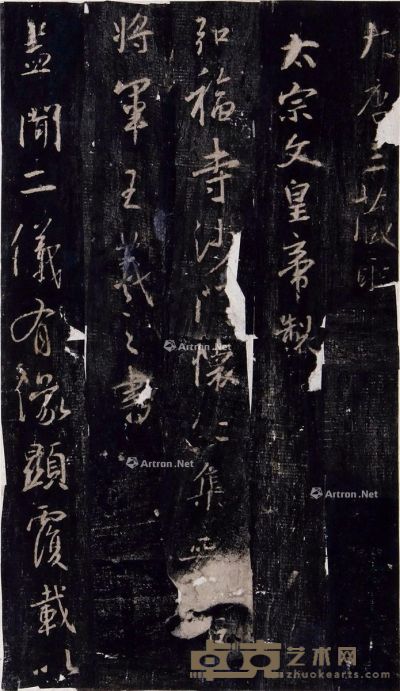 大唐三藏聖
太宗文皇帝製
弘福寺沙門懷仁集
將軍王羲之書
蓋聞二儀有像顯覆載以
Artron.Net
Artron.Net
Artron.Net
卓克艺术网
zhuokearts.com